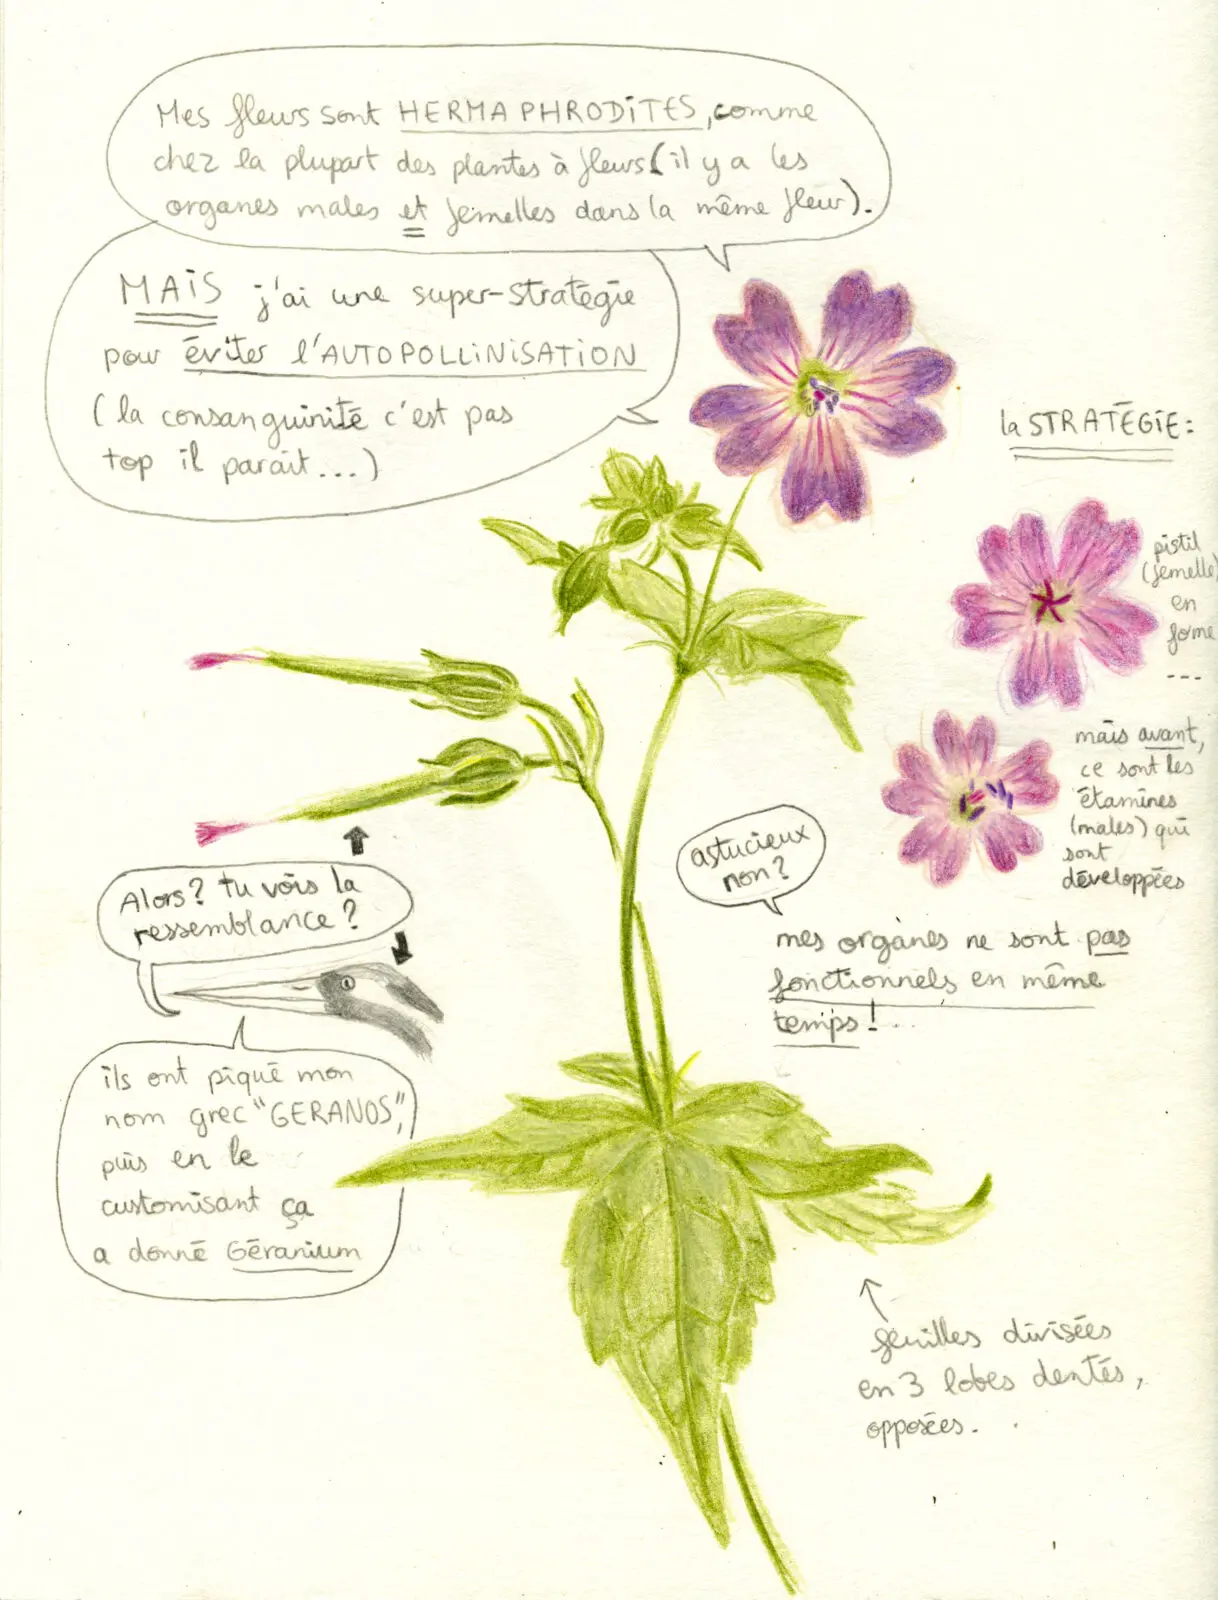 Mes fleurs sont HERMAPHRODITES, comme
chez la plupart des plantes à fleurs (il y a les
organes males et femelles dans la même fleur).
MAIS j'ai une super-stratégie
pour éviter l'AUTOPOLLINISATION
(la consanguinité c'est pas
top il parait...)
la STRATÉGIE:
pistil
(femelle)
en
forme
---
mais avant,
ce sont les
étamines
(males) qui
sont
développées
astucieux
non?
mes organes ne sont pas
fonctionnels en même
temps!...
Alors? tu vois la
ressemblance?
ils ont piqué mon
nom grec "GERANOS",
puis en le
customisant ça
a donné Géranium
feuilles divisées
en 3 lobes dentés,
opposées.